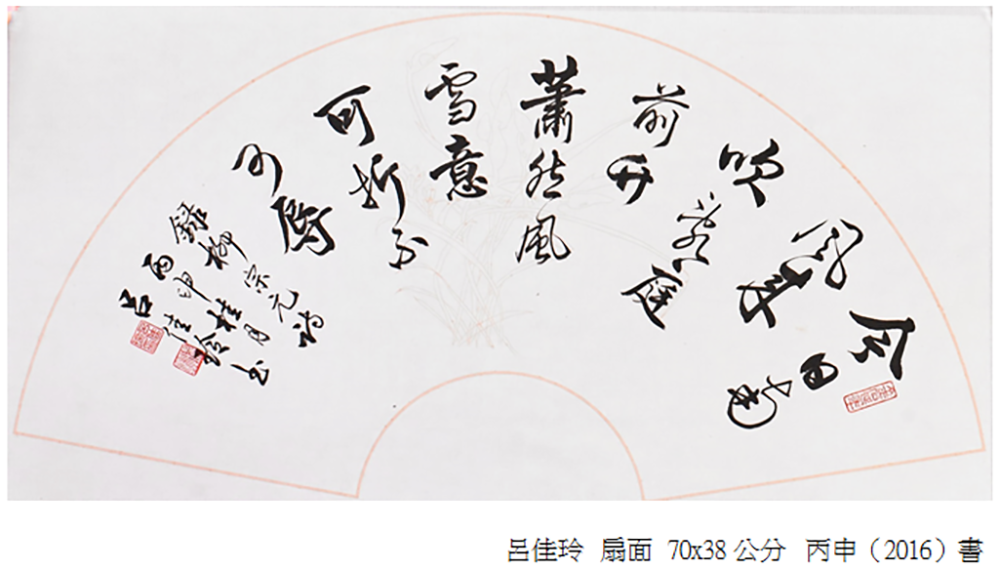 今日南
風來
吹亂庭
前竹
蕭然風
雪意
可折不
可辱
錄柳宗元詩
丙申桂月
呂佳玲書
呂佳玲 扇面 70x38 公分 丙申（2016）書